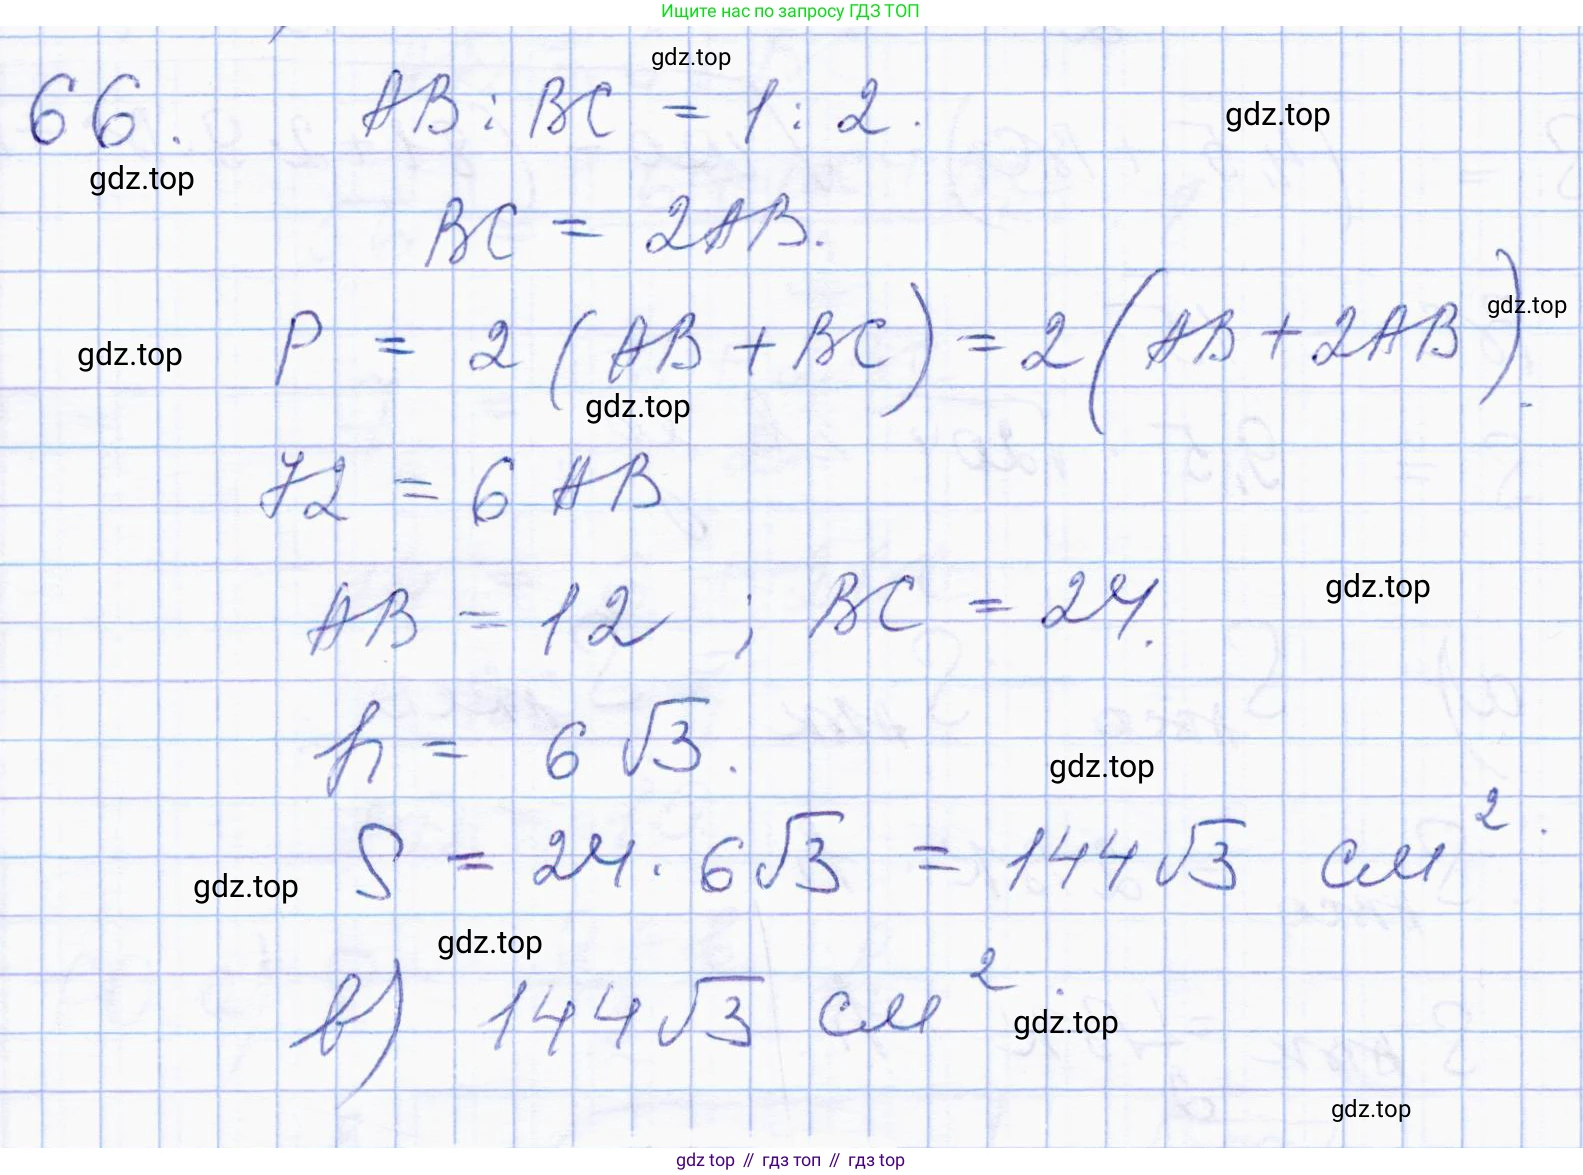 Ищите нас по запросу ГДЗ ТОП
gdz.top
66. AB : BC = 1 : 2.
gdz.top
gdz.top
BC = 2AB.
gdz.top
P = 2(AB + BC) = 2(AB + 2AB).
gdz.top
gdz.top
72 = 6 AB
gdz.top
AB = 12 ; BC = 24.
h = 6√3.
gdz.top
S = 24 · 6√3 = 144√3 см².
gdz.top
gdz.top
в) 144√3 см².
gdz.top
gdz.top
gdz top // гдз топ // гдз top